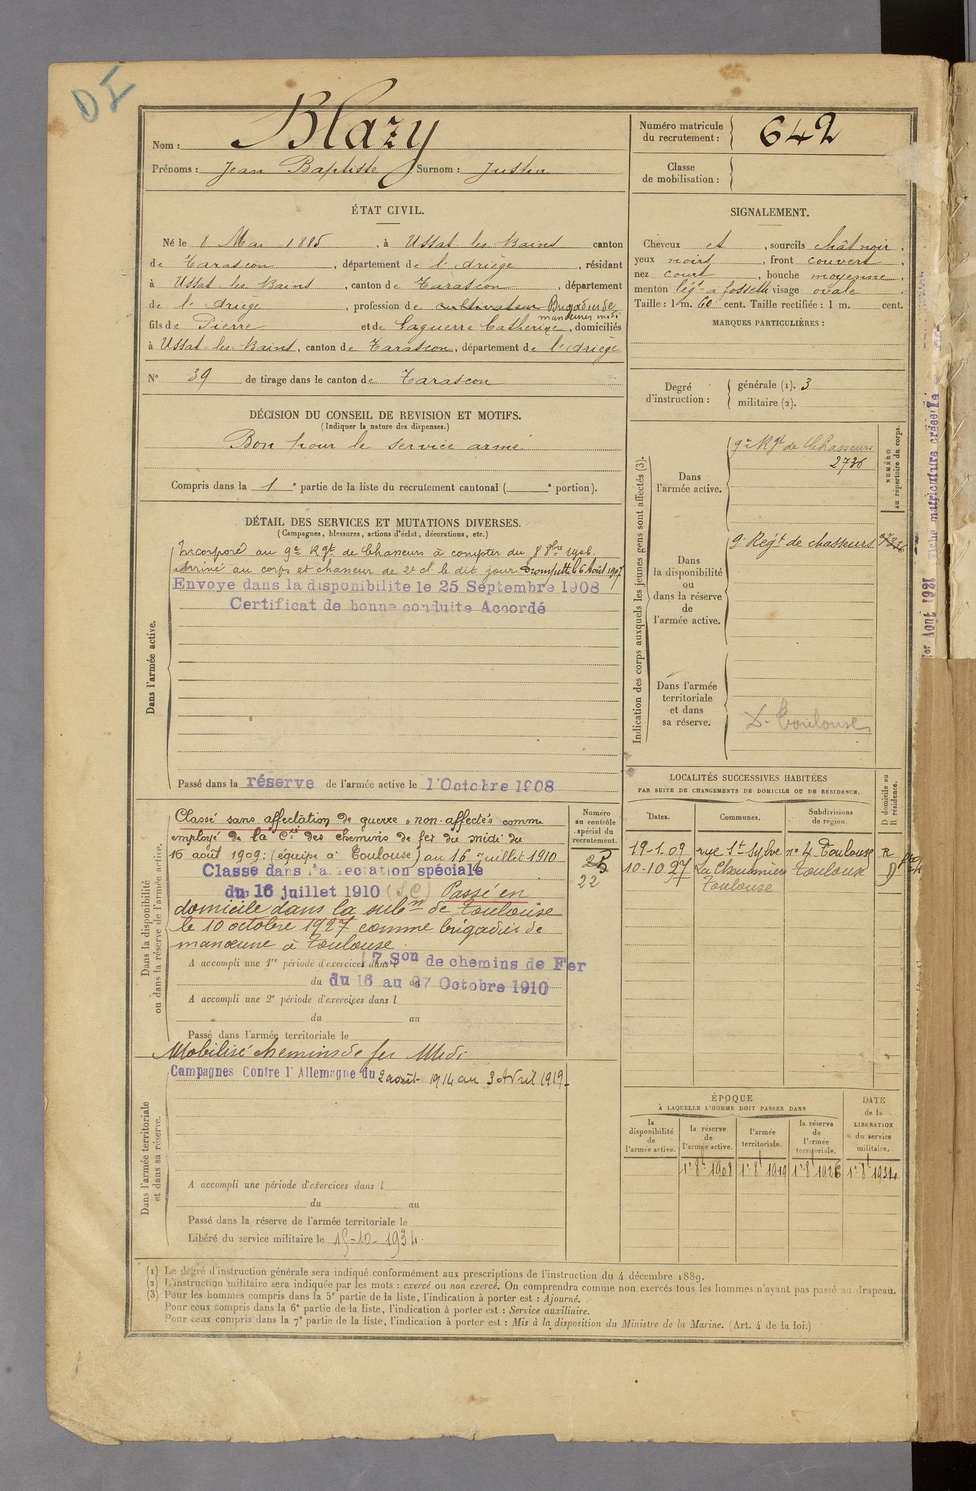 DI
Nom : Blazy
Prénoms : Jean Baptiste Surnom : Justin
Numéro matricule du recrutement : 642
Classe de mobilisation :
ÉTAT CIVIL.
Né le 8 Mai 1885, à Ussat les Bains canton
de Tarascon, département de l'Ariège, résidant
à Ussat les Bains, canton de Tarascon, département
de l'Ariège, profession de cultivateur Brigadier de
manœuvres midi
fils de Pierre et de Laguerre Catherine, domiciliés
à Ussat-les-Bains, canton de Tarascon, département de l'Ariège
N° 39 de tirage dans le canton de Tarascon
SIGNALEMENT.
Cheveux et, sourcils chât noir.
yeux noirs, front couvert
nez court, bouche moyenne
menton lég a fossette visage ovale.
Taille : 1 m. 66 cent. Taille rectifiée : 1 m. cent.
MARQUES PARTICULIÈRES :
DÉCISION DU CONSEIL DE REVISION ET MOTIFS.
(Indiquer la nature des dispenses.)
Bon pour le service armé
Compris dans la 1e partie de la liste du recrutement cantonal ( e portion).
Degré d'instruction :
générale (1). 3
militaire (2).
DÉTAIL DES SERVICES ET MUTATIONS DIVERSES.
(Campagnes, blessures, actions d'éclat, décorations, etc.)
Dans l'armée active.
Incorporé au 9e Rgt de Chasseurs à compter du 8 8bre 1906.
Arrivé au corps et chasseur de 2e cl le dit jour Trompette le 6 Août 1907
Envoye dans la disponibilite le 25 Septembre 1908
Certificat de bonne conduite Accordé
Passé dans la réserve de l'armée active le 1 Octobre 1908
Indication des corps auxquels les jeunes gens sont affectés (3).
NUMÉRO au répertoire du corps.
Dans l'armée active.
9e Rgt de Chasseurs
2736
Dans la disponibilité ou dans la réserve de l'armée active.
9e Regt de chasseurs 2736
Dans l'armée territoriale et dans sa réserve.
D. Toulouse
1er Août 1931
Dans la disponibilité ou dans la réserve de l'armée active.
Numéro au contrôle spécial du recrutement.
Classé sans affectation de guerre "non-affecté" comme
employé de la Cie des chemins de fer du midi du
16 août 1909 : (équipe à Toulouse) au 16 juillet 1910
Classe dans l'affectation spéciale
du 16 juillet 1910 (S.P.) Passé en
domicile dans la subon de Toulouse
le 10 octobre 1927 comme brigadier de
manœuvre à Toulouse.
22
A accompli une 1re période d'exercices dans l 7 Son de chemins de Fer
du 16 au 27 Octobre 1910
A accompli une 2e période d'exercices dans l
du au
Passé dans l'armée territoriale le
Mobilisé chemins de fer Midi
Dans l'armée territoriale et dans sa réserve.
Campagnes Contre l'Allemagne du 2 août 1914 au 3 Avril 1919
A accompli une période d'exercices dans l
du au
Passé dans la réserve de l'armée territoriale le
Libéré du service militaire le 15-10-1934.
LOCALITÉS SUCCESSIVES HABITÉES
PAR SUITE DE CHANGEMENTS DE DOMICILE OU DE RÉSIDENCE.
Dates. Communes. Subdivisions de région. D domicile ou R résidence.
19-1.09 rue St-Sylve no 4 Toulouse R
10-10.27 La Chaumière Toulouse D
Toulouse
ÉPOQUE
À LAQUELLE L'HOMME DOIT PASSER DANS
la disponibilité de l'armée active.
la réserve de l'armée active.
l'armée territoriale.
la réserve de l'armée territoriale.
DATE de la LIBÉRATION du service militaire.
1er 8bre 1908 1er 8bre 1919 1er 8bre 1926 1er 8bre 1934
(1) Le degré d'instruction générale sera indiqué conformément aux prescriptions de l'instruction du 4 décembre 1889.
(2) L'instruction militaire sera indiquée par les mots : exercé ou non exercé. On comprendra comme non exercés tous les hommes n'ayant pas passé au drapeau.
(3) Pour les hommes compris dans la 5e partie de la liste, l'indication à porter est : Ajourné.
Pour ceux compris dans la 6e partie de la liste, l'indication à porter est : Service auxiliaire.
Pour ceux compris dans la 7e partie de la liste, l'indication à porter est : Mis à la disposition du Ministre de la Marine. (Art. 4 de la loi.)